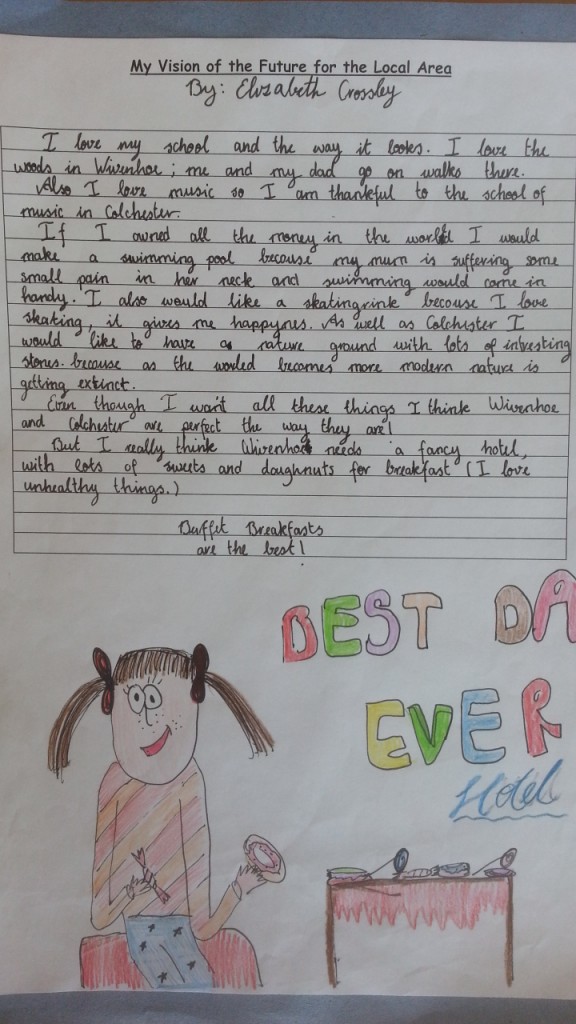 My Vision of the Future for the Local Area
By: Elizabeth Crossley
I love my school and the way it looks. I love the
woods in Wivenhoe; me and my dad go on walks there.
Also I love music so I am thankful to the school of
music in Colchester.
If I owned all the money in the world I would
make a swimming pool because my mum is suffering some
small pain in her neck and swimming would come in
handy. I also would like a skatingrink because I love
skating, it gives me happynes. As well as Colchester I
would like to have a nature ground with lots of intresting
stones. because as the worled becomes more modern nature is
getting extinct.
Even though I want all these things I think Wivenhoe
and Colchester are perfect the way they are!
But I really think Wivenhoe needs a fancy hotel,
with lots of sweets and doughnuts for breakfast (I love
unhealthy things.)
Buffet Breakfasts
are the best!
BEST DA
EVER
Hotel